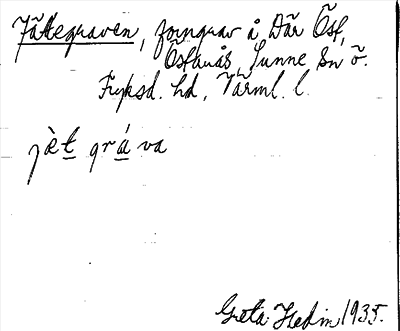 Jättegraven, forngrav å Där Öst,
Östanås, Sunne sn ö.
Fryksd. hd, Värml. l.
jèt gráva
Greta Hedin 1935.